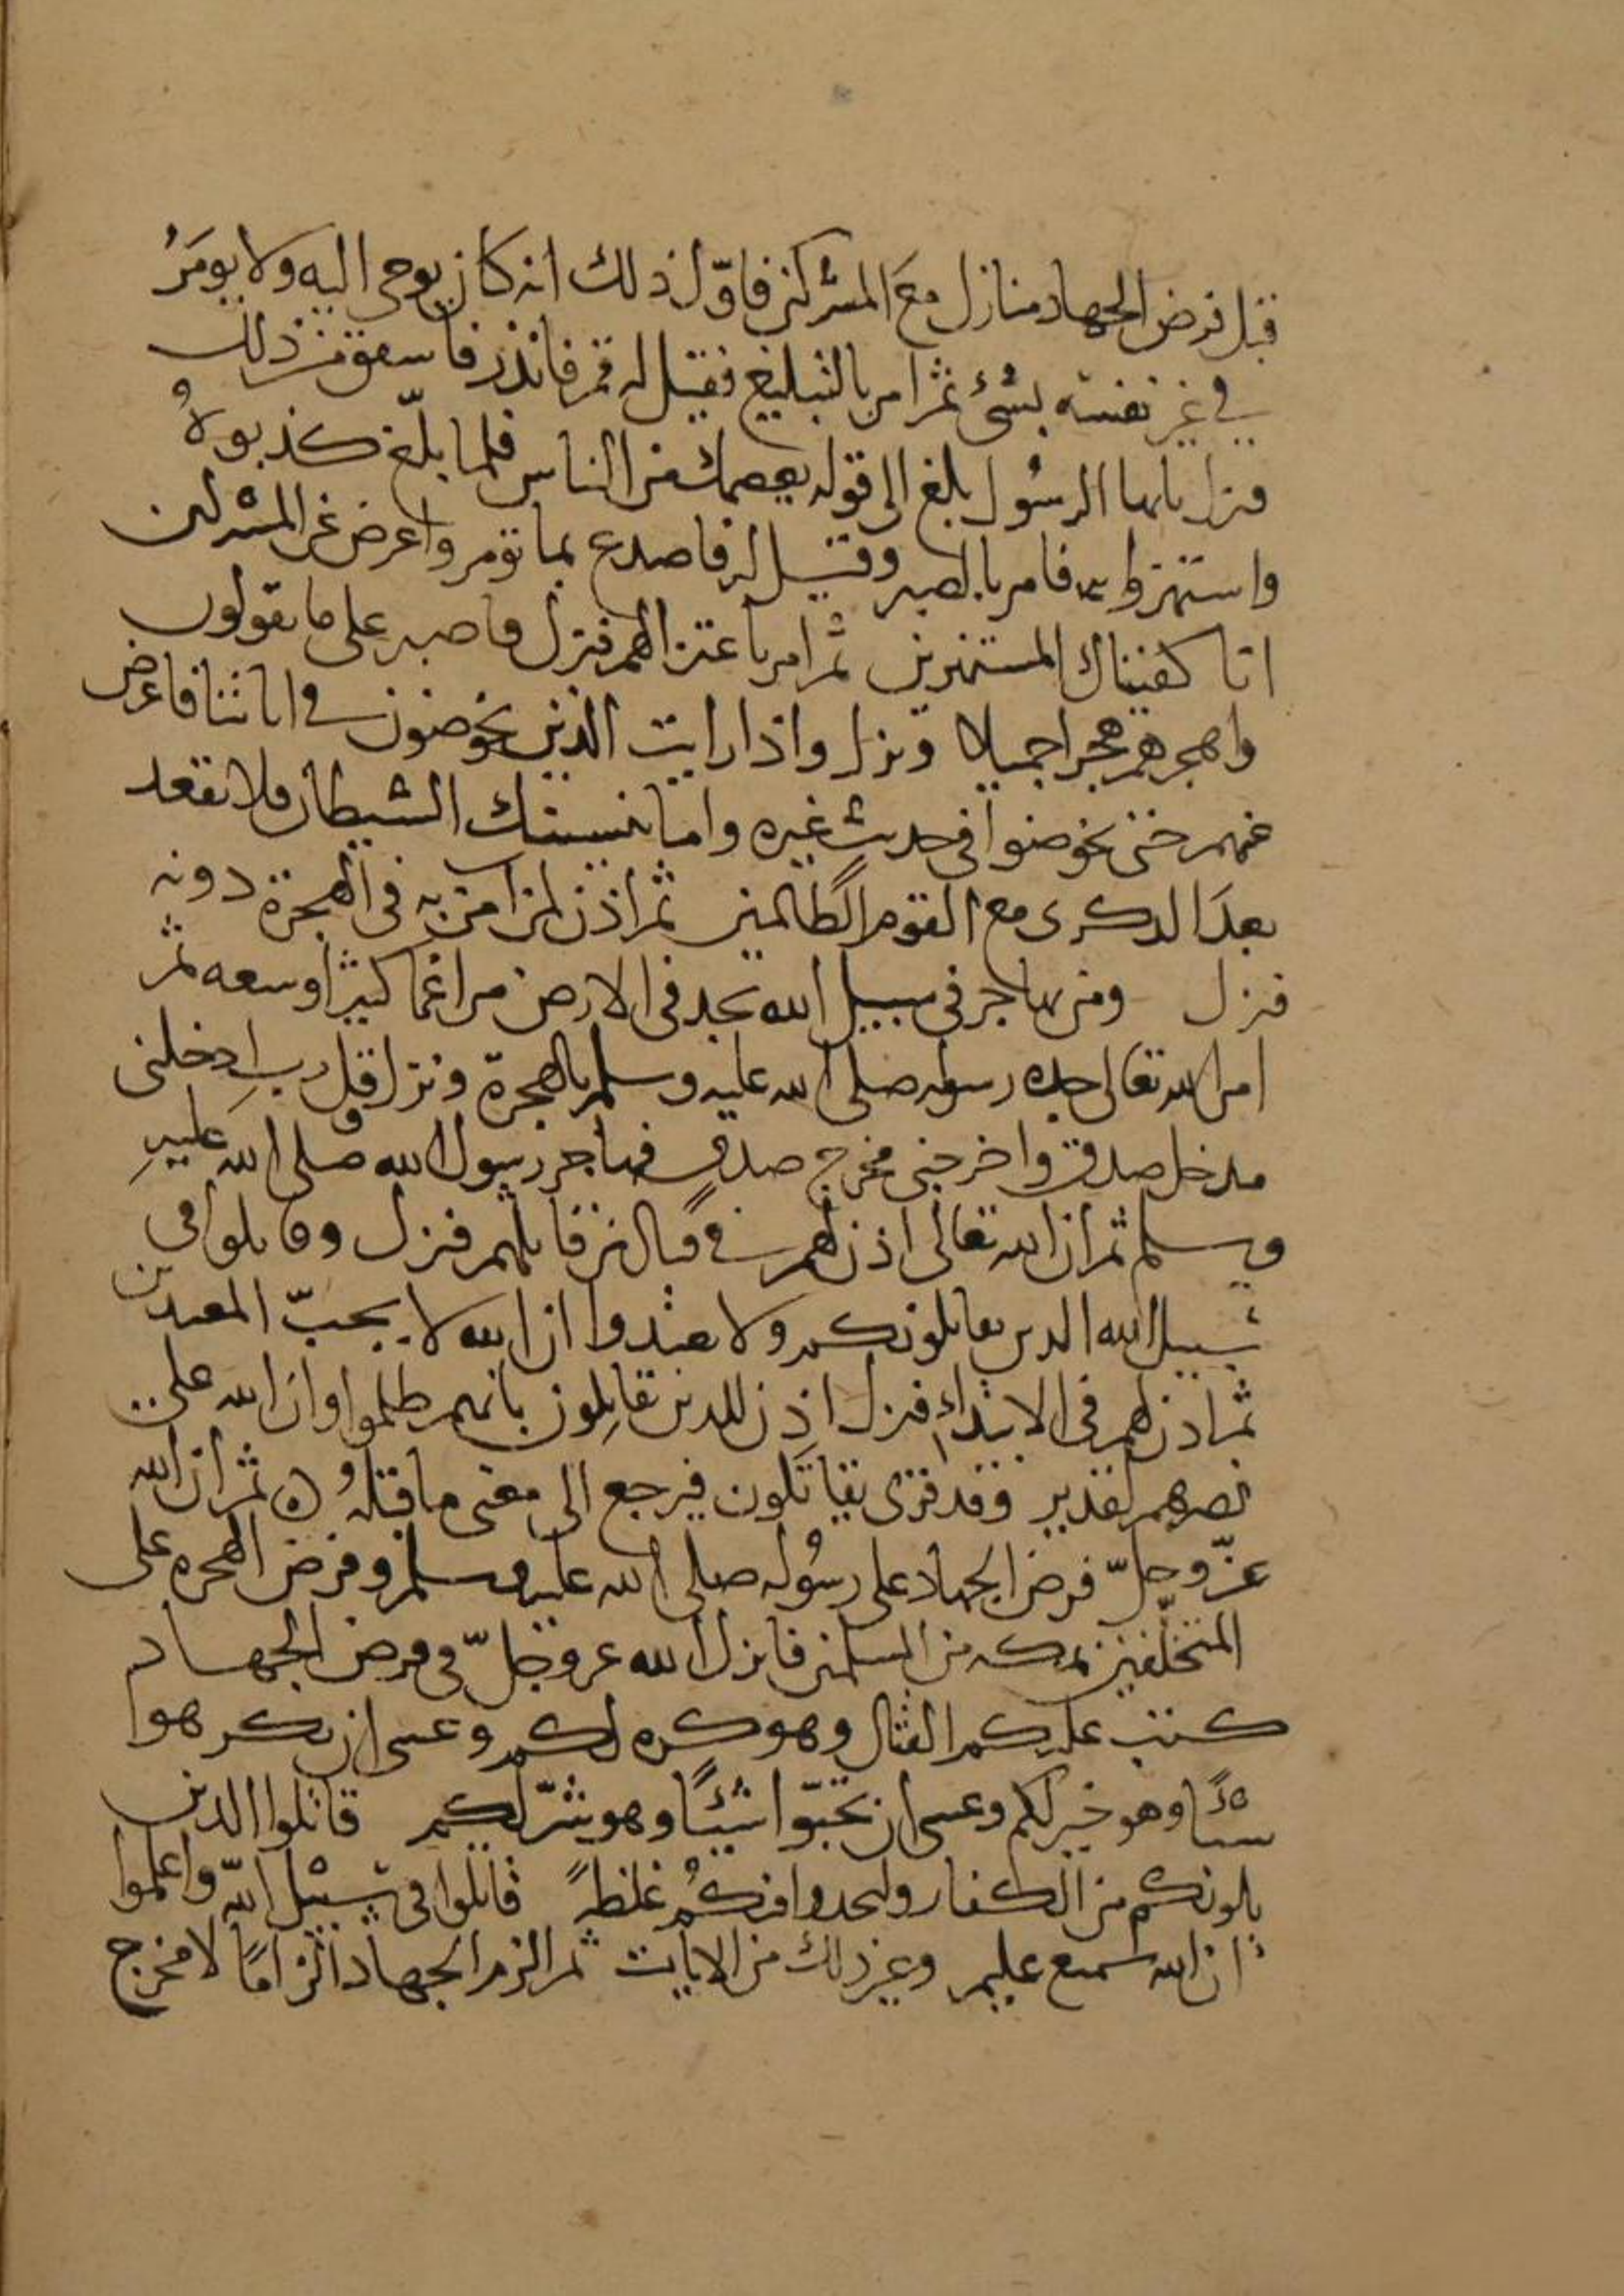 قبل فرض الجهاد منازل مع المشركين فاوّل ذلك انه كان يوحى اليه ولا يومرُ
في غير نفسه بشئ ثم امر بالتبليغ فقيل له قم فانذر فاسفق من ذلك
فنزل يايها الرسُول بلغ الى قوله يعصمك من الناس فلما بلّغ كذبوهُ
واستهزوا به فامر بالصبر وقيل له فاصدع بما تومر واعرض عن المشركين
انا كفيناك المستهزين ثم امر باعتزالهم فنزل واصبر على ما يقولون
واهجرهم هجرا جميلا ونزل واذا رايت الذين يخوضون في اياتنا فاعرض
عنهم حتى يخوضوا في حديث غيره واما ينسينك الشيطان فلا تقعد
بعدَ الذكرى مع القوم الظالمين ثم اذن لمن امن به في الهجرة دونه
فنزل ومن يهاجر في سبيل الله يجد في الارض مراغما كثيرا وسعه ثم
امر الله تعالى جده رسوله صلى الله عليه وسلم بالهجرة ونزل وقل رب ادخلني
مدخل صدق واخرجني مخرج صدق فهاجر رسول الله صلى الله عليهِ
وسلم ثم ان الله تعالى اذن لهم في قتال من قاتلهم فنزل وقاتلوا في
سبيل الله الدين يقاتلونكم ولا تعتدوا ان الله لا يحبّ المعتدين
ثم اذن لهم في الابتداء فنزل اذن للدين يقاتِلون بانهم ظلموا وان الله على
نصرهم لقدير وقد قرى يقاتَلون فيرجع الى معنى ما قبلهُ ه ثم ان الله
عزّ وجلّ فرض الجهاد على رسُوله صلى الله عليه وسلم وفرض الهجره على
المتخلّفين بمكه من المسلمين فانزل الله عز وجلّ في فرض الجهاد
كتب عليكم القتال وهو كره لكم وعسى ان تكرهوا
شئًا وهو خير لكم وعسى ان تحبّوا شيئًا وهو شرّ لكم قاتلوا الدين
يلونكم من الكفار وليجدوا فيكُم غلظةً قاتلوا في سبيل الله واعلموا
ان الله سميع عليم وغير ذلك من الايات ثم الزم الجهاد الزامًا لا مخرج